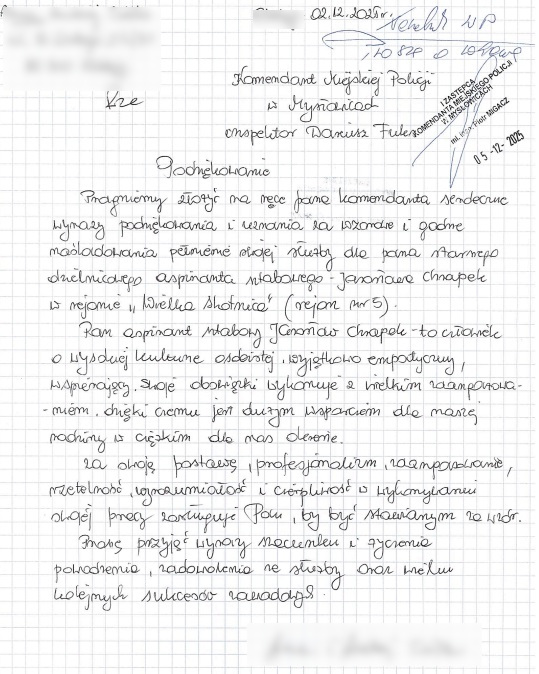 02.12.2025r.
Naczelnik WP
Proszę o
Komendant Miejskiej Policji
w Mysłowicach
inspektor Dariusz
I ZASTĘPCA
KOMENDANTA MIEJSKIEGO POLICJI
W MYSŁOWICACH
mł. insp. Piotr MIGACZ
05 -12- 2025
Podziękowanie
Pragniemy złożyć na ręce pana komendanta serdeczne
wyrazy podziękowania i uznania za wzorowe i godne
naśladowania pełnienie swojej służby dla pana starszego
dzielnicowego aspiranta sztabowego - Jarosława Chrapek
w rejonie "Wielka Skotnica" (rejon nr 5).
Pan aspirant sztabowy Jarosław Chrapek - to człowiek
o wysokiej kulturze osobistej, wyjątkowo empatyczny,
wspierający, swoje obowiązki wykonuje z wielkim zaangażowa-
-niem, dzięki czemu jest dużym wsparciem dla naszej
rodziny w ciężkim dla nas okresie.
Za swoją postawę, profesjonalizm, zaangażowanie,
rzetelność, wyrozumiałość i cierpliwość w wykonywaniu
swojej pracy zasługuje Pan, by być stawianym za wzór.
Proszę przyjąć wyrazy szacunku i życzenia
powodzenia, zadowolenia ze służby oraz wielu
kolejnych sukcesów zawodowych.